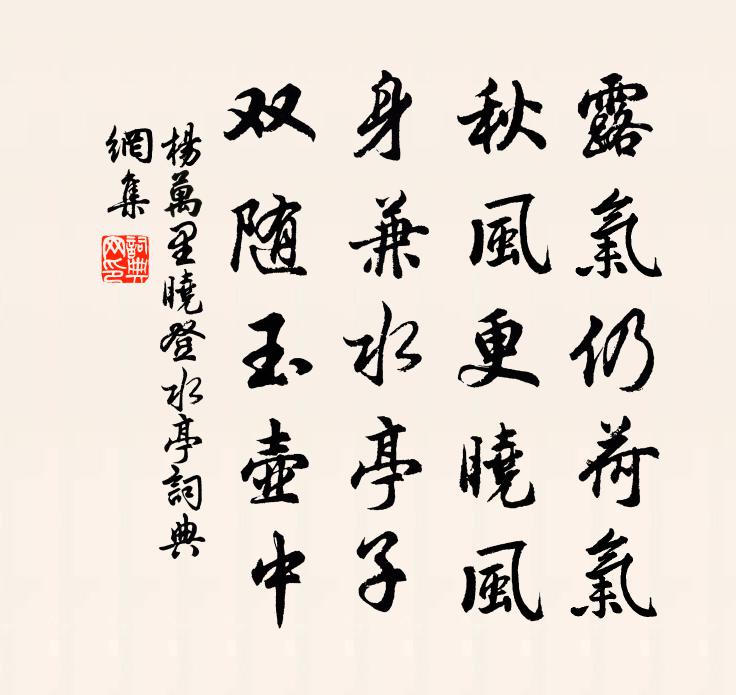 露氣仍荷氣
秋風更曉風
身兼水亭子
双随玉壺中
楊萬里曉登水亭詞典
網集
詞典網印